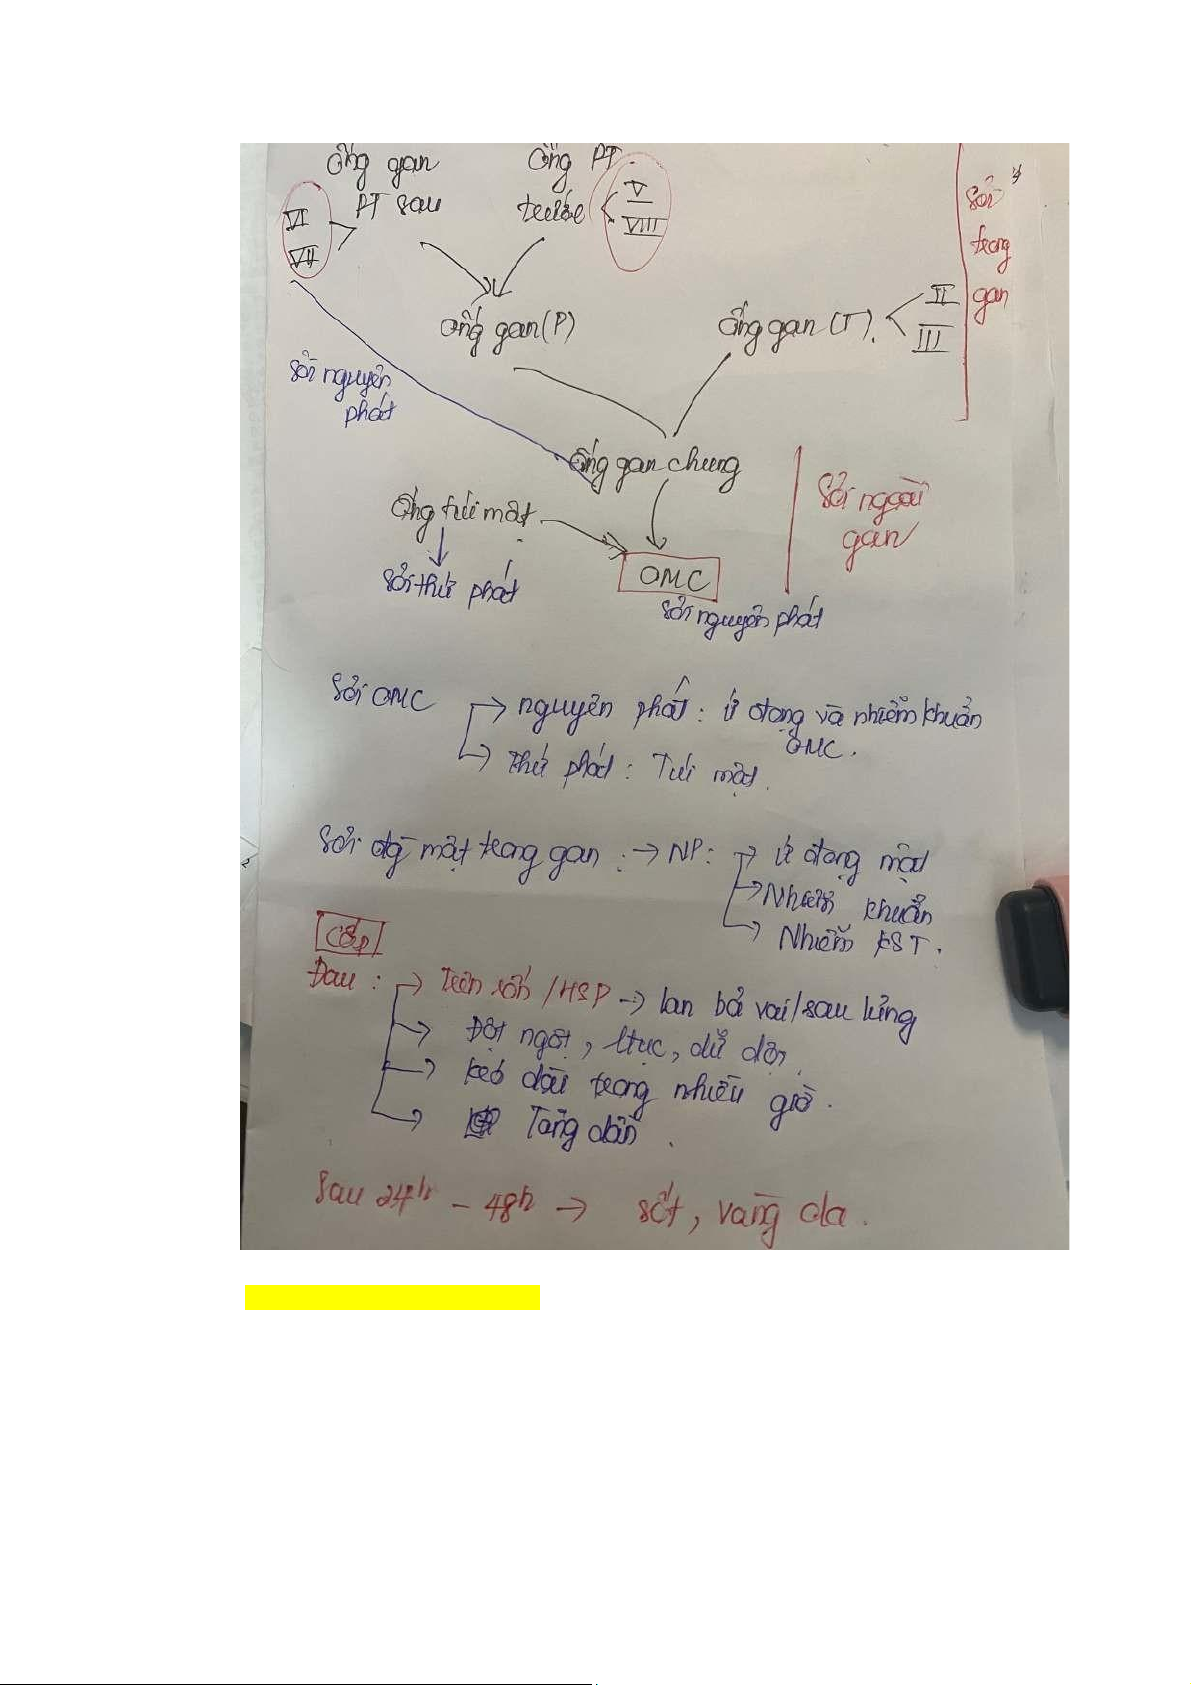 Ống gan
PT sau
VI
VII
Ống PT
trước
V
VIII
Sỏi
trong
gan
ống gan (P)
ống gan (T)
II
III
Sỏi nguyên
phát
ống gan chung
Ống túi mật
Sỏi ngoài
gan
OMC
Sỏi thứ phát
Sỏi nguyên phát
Sỏi OMC
nguyên phát: ứ đọng và nhiễm khuẩn
OMC.
Thứ phát: Túi mật.
Sỏi đg mật trong gan: → NP: → ứ đọng mật
→ Nhiễm khuẩn
→ Nhiễm KST.
Cấp
Đau: → Trên rốn / HSP → lan bả vai/sau lưng
→ Đột ngột, ltục, dữ dội
→ kéo dài trong nhiều giờ.
→ Tăng dần.
Sau 24h - 48h → sốt, vàng da.